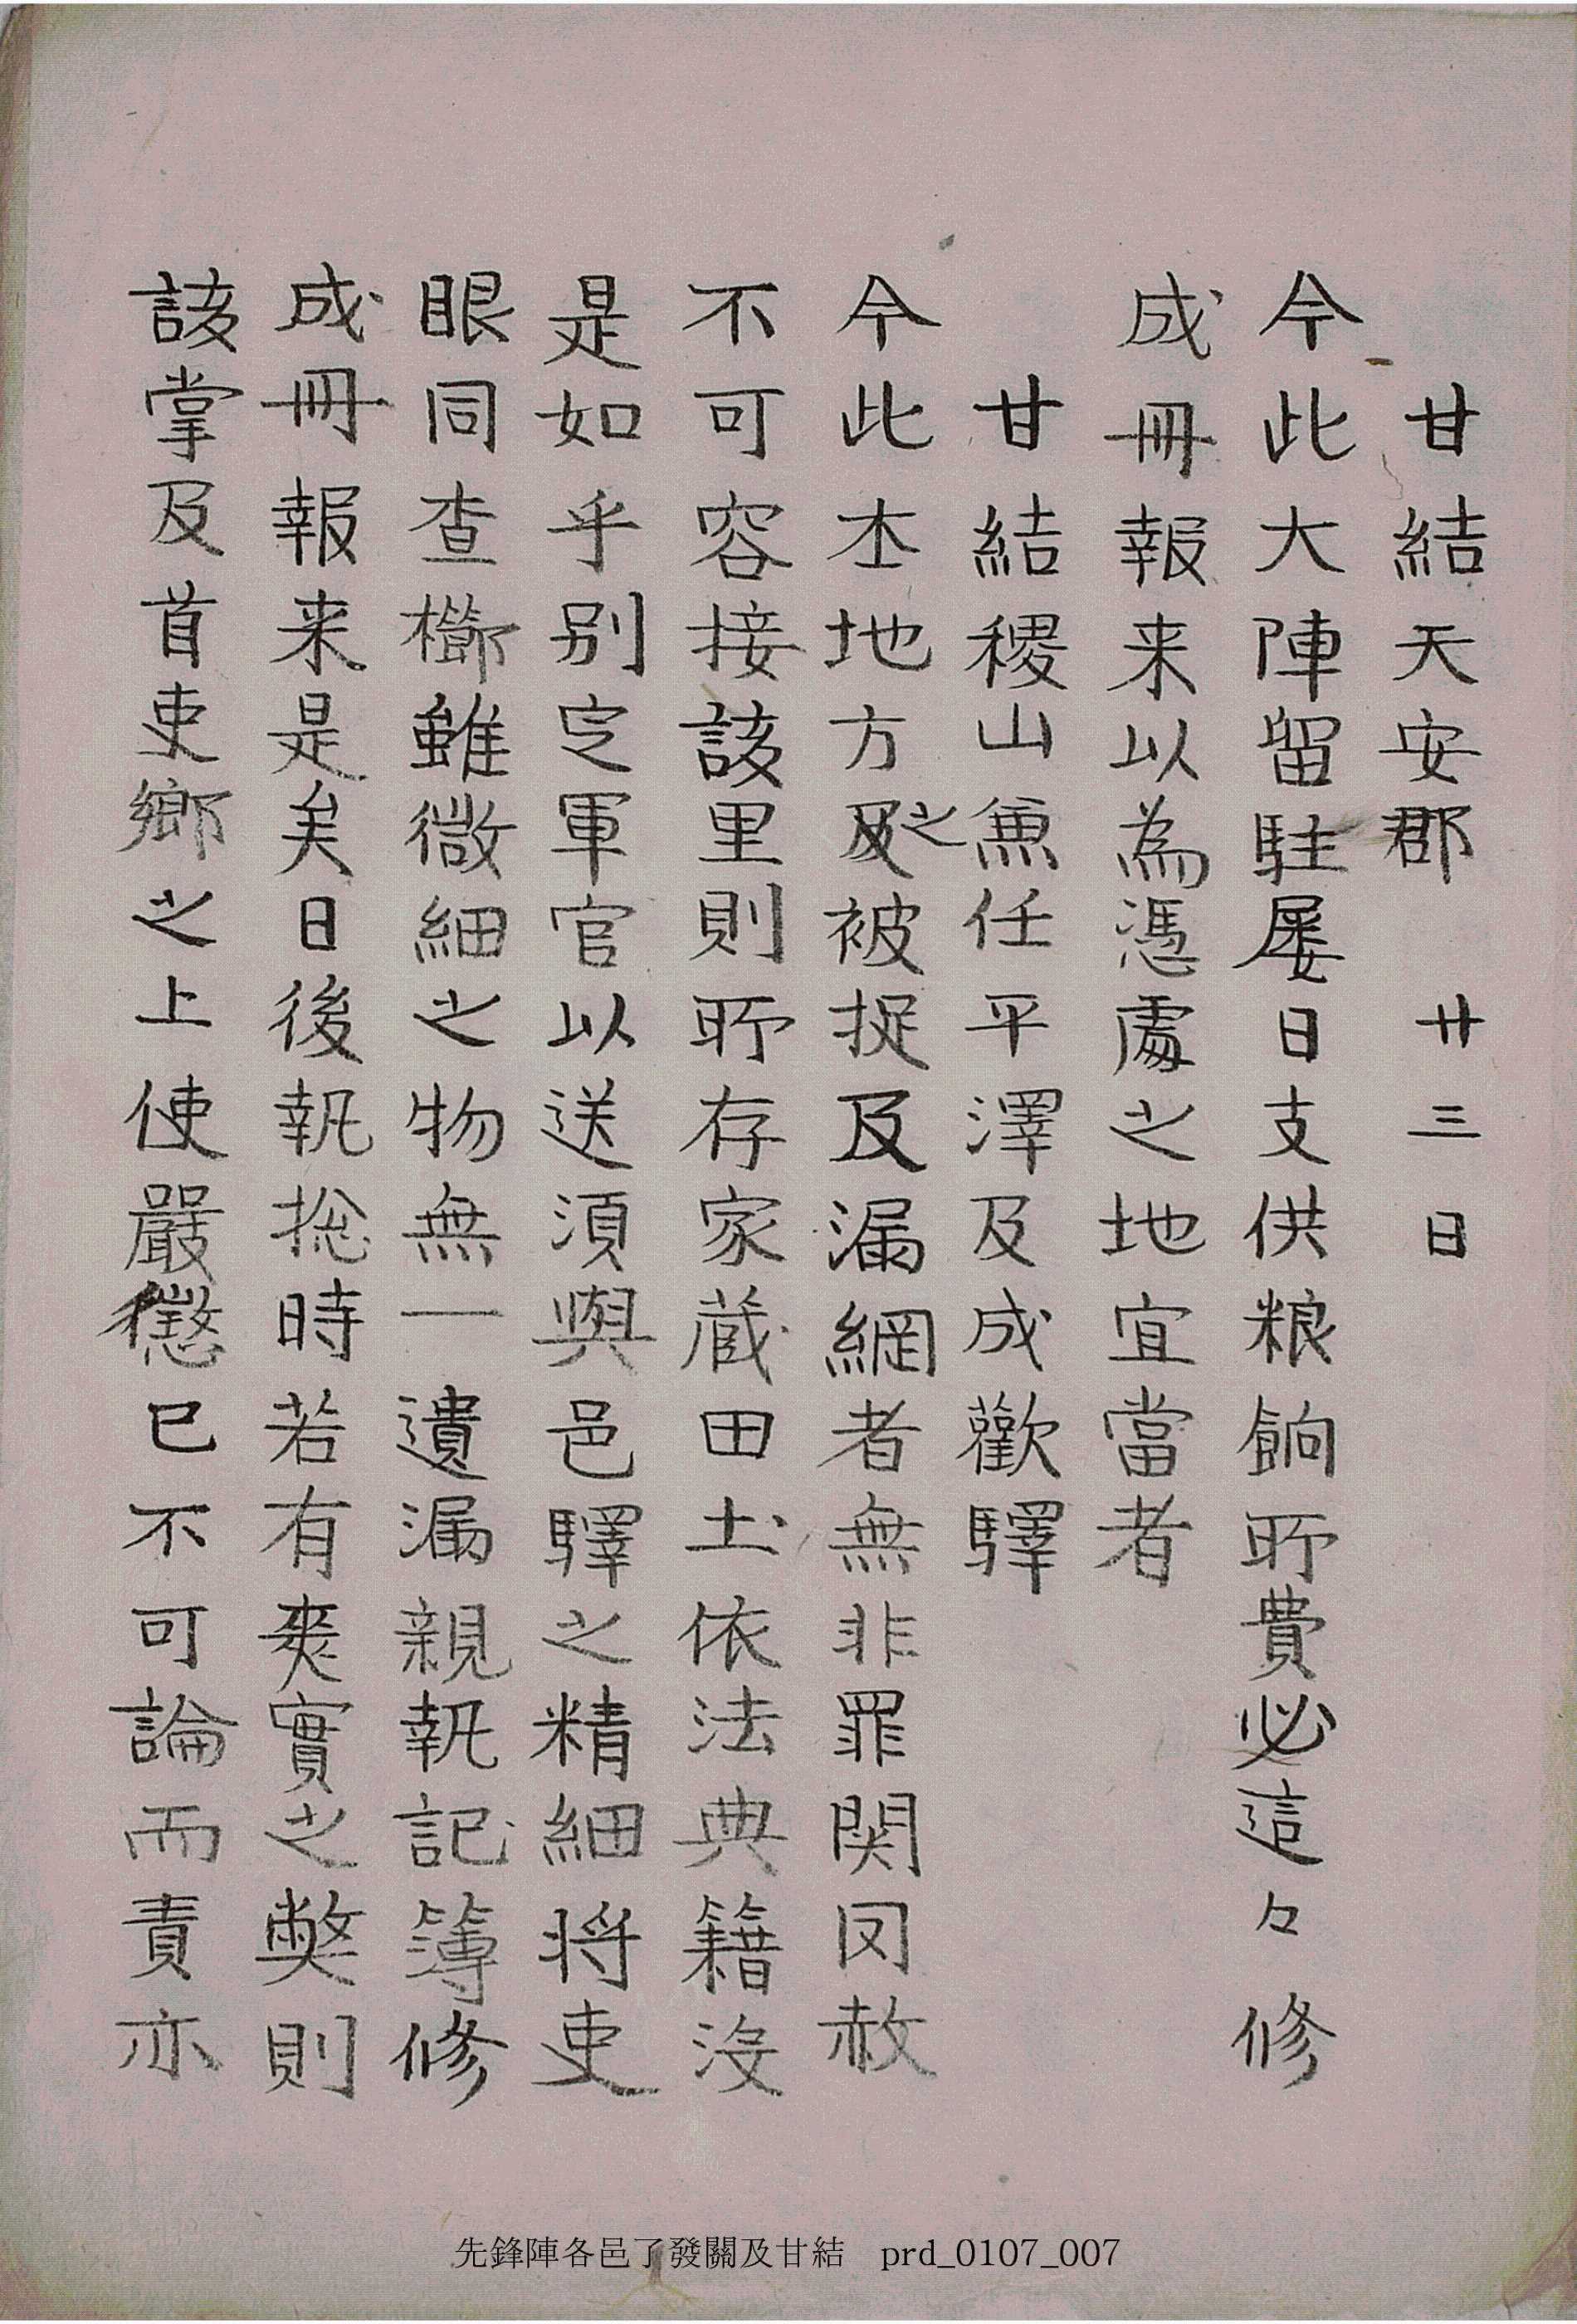 甘結天安郡 廿三日
今此大陣留駐屡日支供粮餉所費必這々修
成冊報来以為憑處之地宜當者
甘結稷山兼任平澤及成歡驛
今此本地方之被捉及漏網者無非罪関罔赦
不可容接該里則所存家蔵田土依法典籍沒
是如乎别定軍官以送須與邑驛之精細将吏
眼同查櫛雖微細之物無一遺漏親執記簿修
成冊報来是矣日後執摠時若有爽實之弊則
該掌及首吏鄉之上使嚴懲已不可論而責亦
先鋒陣各邑了發關及甘結 prd_0107_007